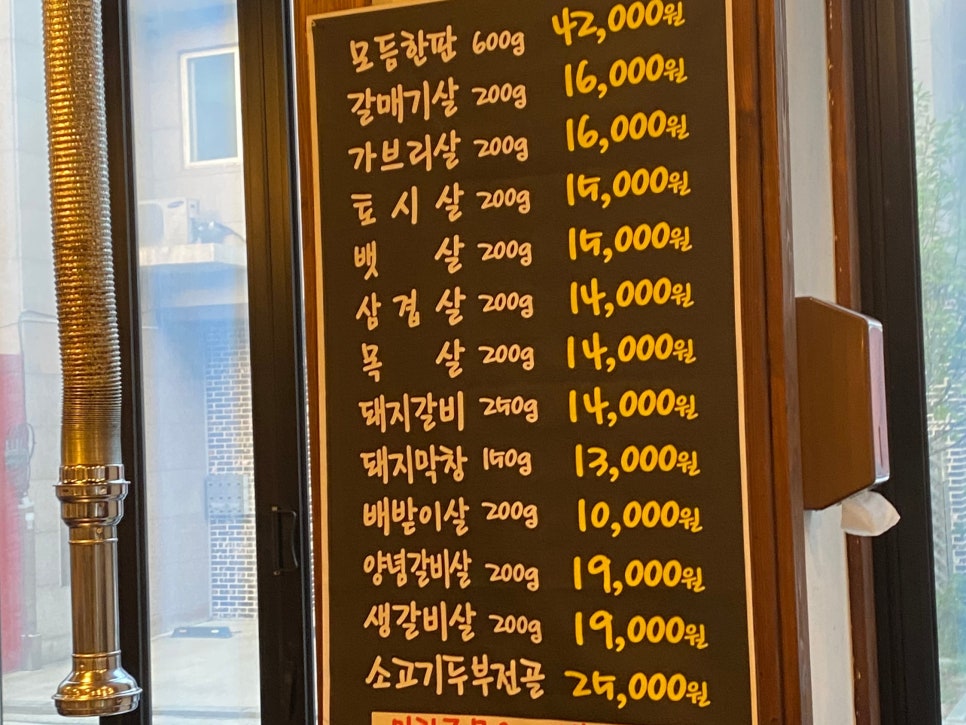 모듬한판 600g 42,000원
갈매기살 200g 16,000원
가브리살 200g 16,000원
토시살 200g 15,000원
뱃살 200g 15,000원
삼겹살 200g 14,000원
목살 200g 14,000원
돼지갈비 250g 14,000원
돼지막창 150g 13,000원
배받이살 200g 10,000원
양념갈비살 200g 19,000원
생갈비살 200g 19,000원
소고기두부전골 25,000원